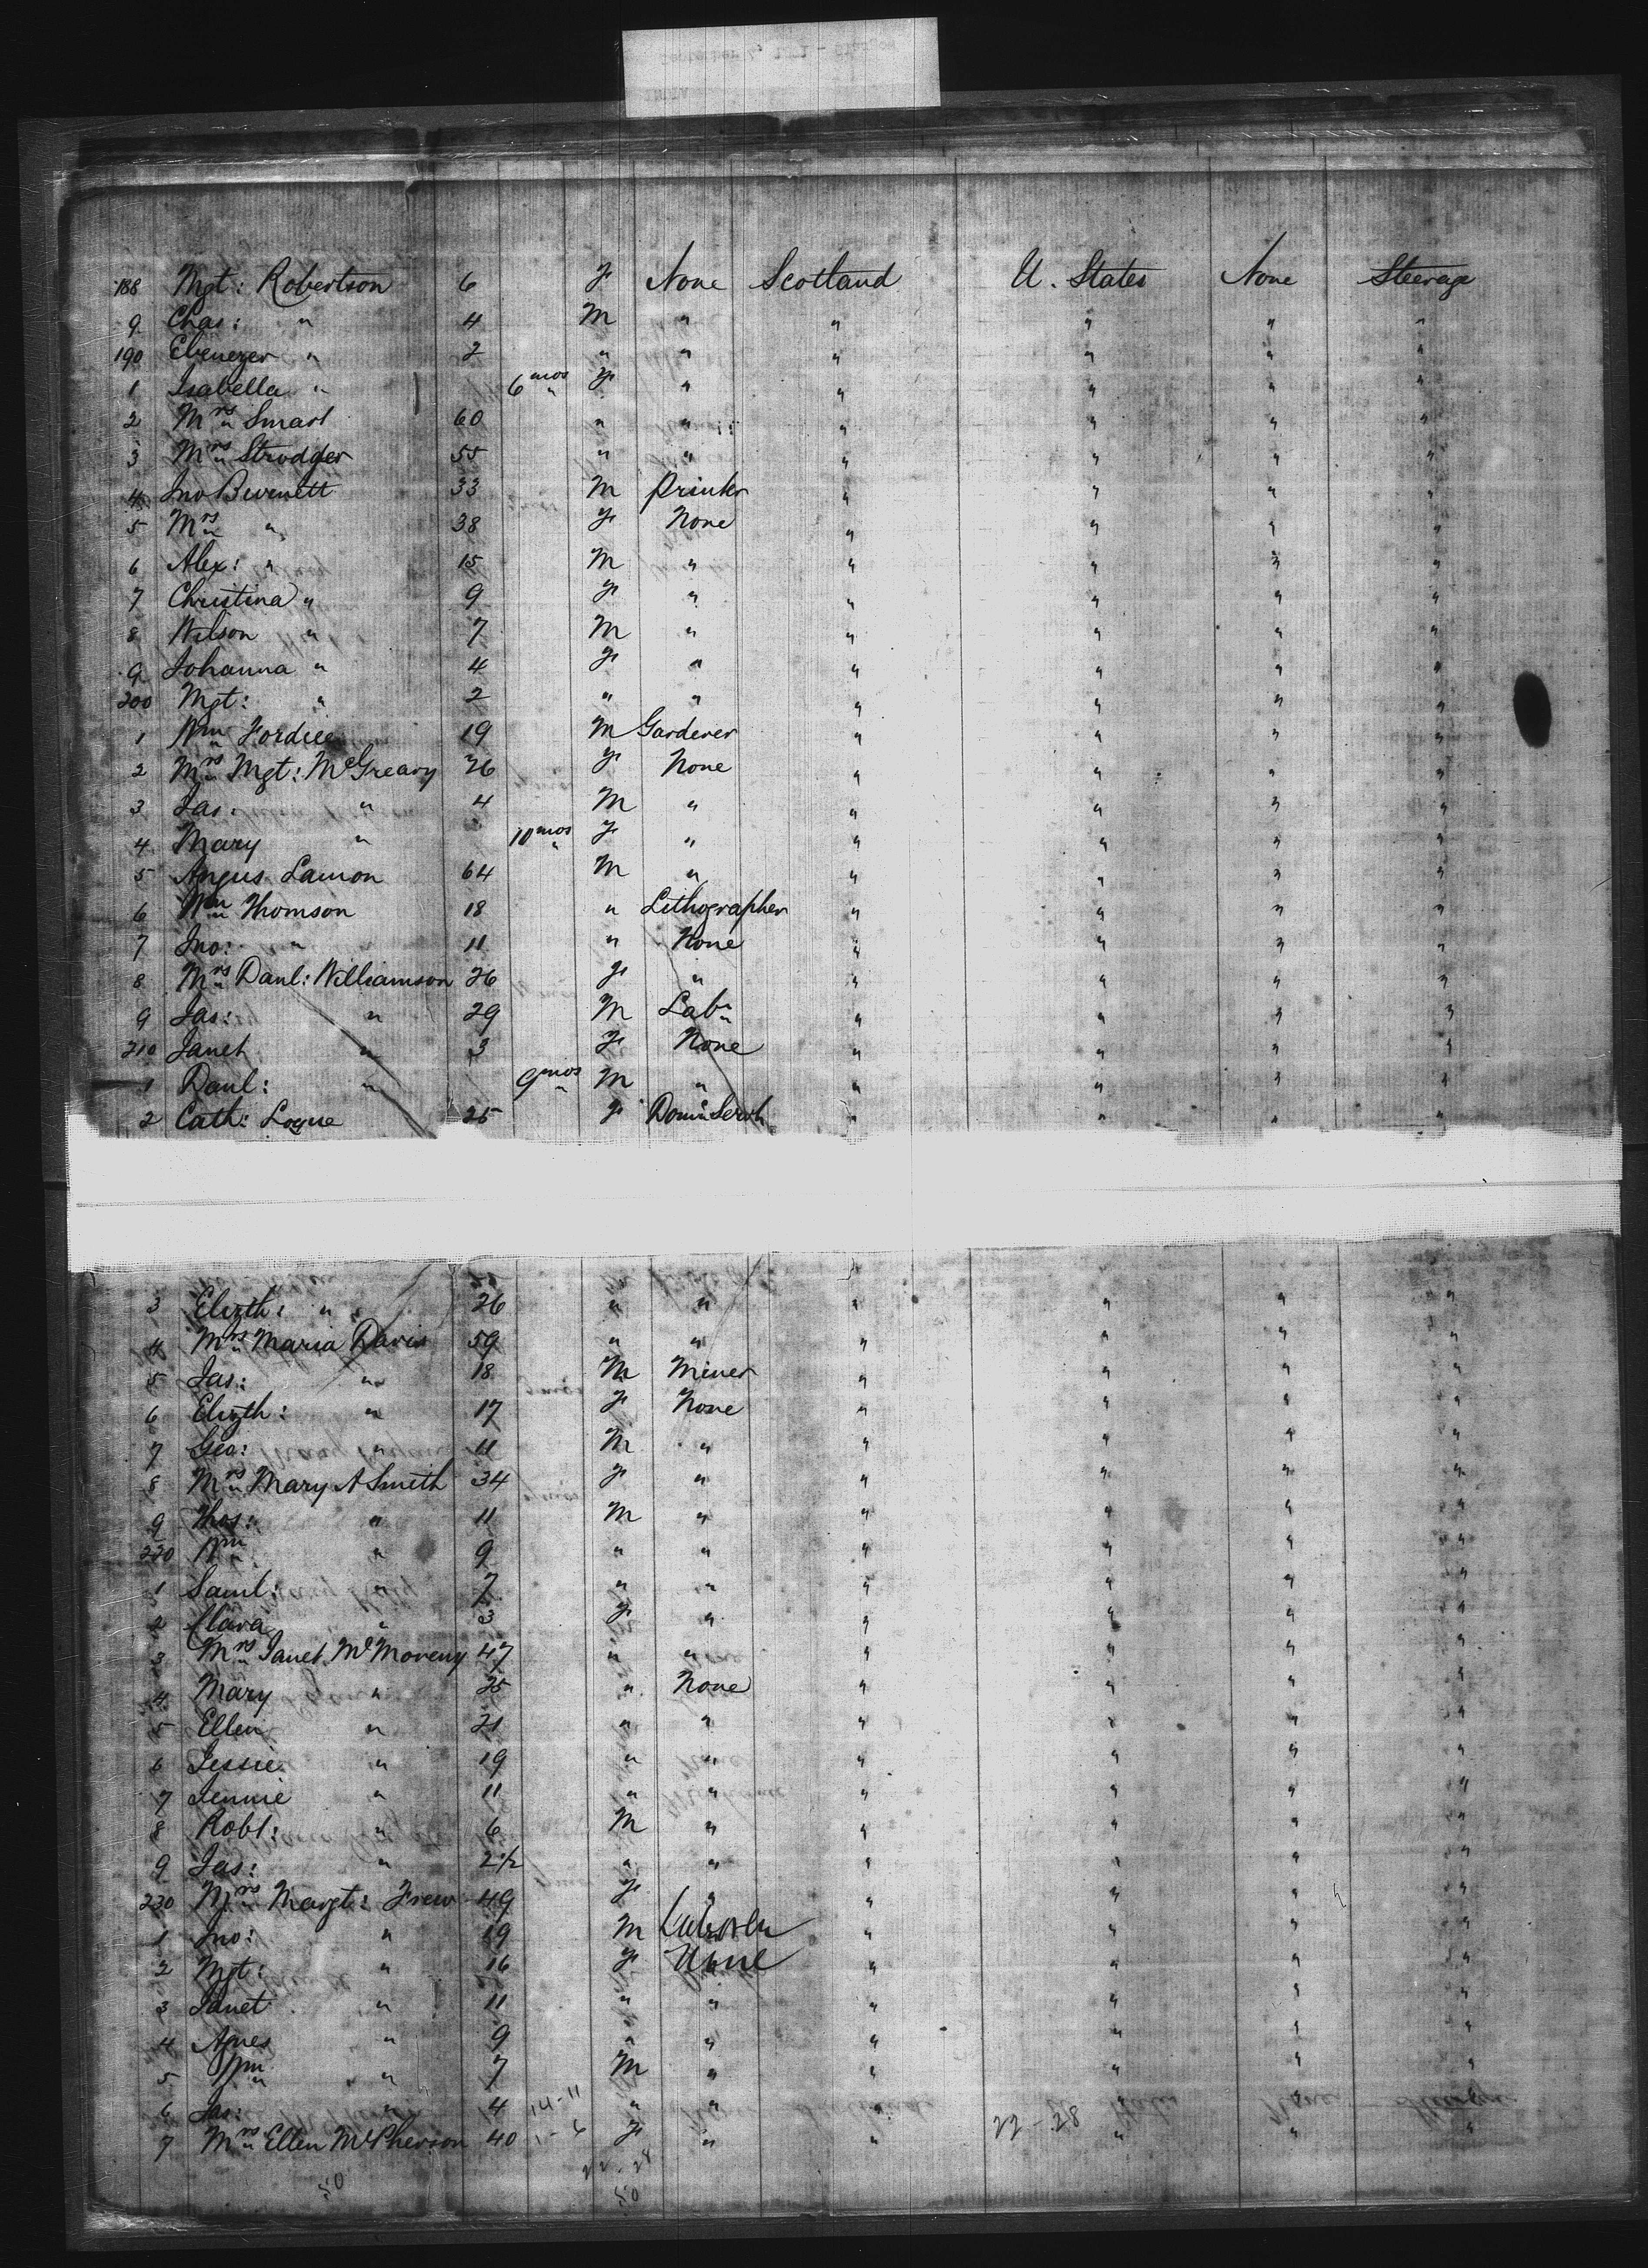 188 Mgt: Robertson 6 F None Scotland U. States None Steerage
9 Chas: " 4 M " " " " "
190 Ebenezer " 2 " " " " " "
1 Isabella " 6 mos F " " " " "
2 Mrs Smart 60 " " " " " "
3 Mrs Strodger 55 " " " " " "
4 Jno Burnett 33 M Printer " " " "
5 Mrs " 38 F None " " " "
6 Alex: " 15 M " " " " "
7 Christina " 9 F " " " " "
8 Wilson " 7 M " " " " "
9 Johanna " 4 F " " " " "
200 Mgt: " 2 " " " " " "
1 Wm Fordice 19 M Gardener " " " "
2 Mrs Mgt: McGreavy 26 F None " " " "
3 Jas: " 4 M " " " " "
4 Mary " 10 mos F " " " " "
5 Angus Lamon 64 M " " " " "
6 Wm Thomson 18 " Lithographer " " " "
7 Jno: " 11 " None " " " "
8 Mrs Danl: Williamson 26 F " " " " "
9 Jas: " 29 M Labr " " " "
210 Janet " 3 F None " " " "
1 Danl: " 9 mos M " " " " "
2 Cath: Logue 25 F Dom Servt " " " "
3 Elizth: " 26 " " " " " "
4 Mrs Maria Davis 59 " " " " " "
5 Jas: " 18 M Miner " " " "
6 Elizth: " 17 F None " " " "
7 Geo: " 11 M " " " " "
8 Mrs Mary A Smith 34 F " " " " "
9 Thos: " 11 M " " " " "
220 Wm " 9 " " " " " "
1 Saml: " 7 " " " " " "
2 Clara " 3 F " " " " "
3 Mrs Janet McMoreny 47 " " " " " "
4 Mary " 25 " None " " " "
5 Ellen " 21 " " " " " "
6 Jessie " 19 " " " " " "
7 Jennie " 11 " " " " " "
8 Robt: " 6 M " " " " "
9 Jas: " 2 1/2 " " " " " "
230 Mrs Margt: Frew 49 F " " " " "
1 Jno: " 19 M Laborer " " " "
2 Mgt: " 16 F None " " " "
3 Janet " 11 " " " " " "
4 Agnes " 9 " " " " " "
5 Wm " 7 M " " " " "
6 Jas: " 4 14-11 " " " " " "
7 Mrs Ellen McPherson 40 1-6 F " " 22-28 " " "
22-28
50 50